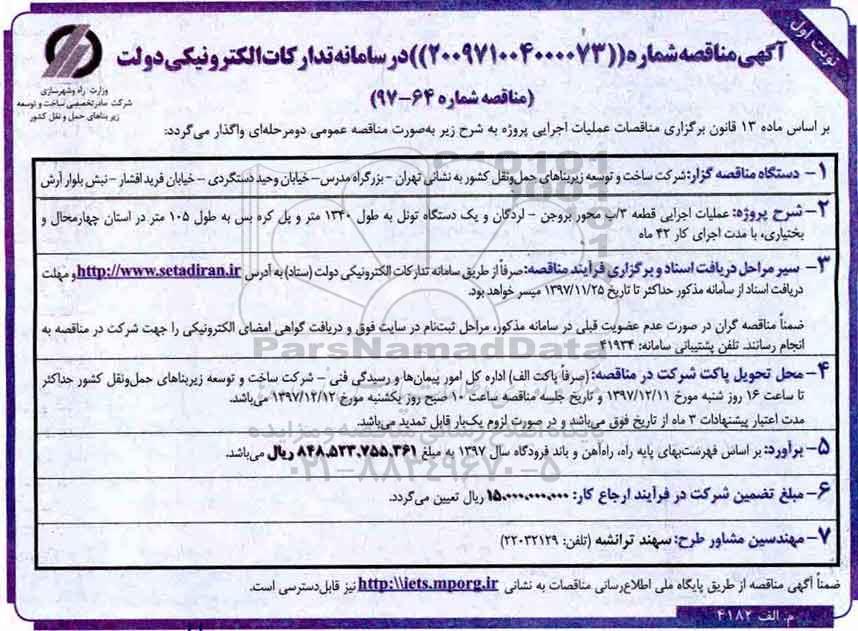 نوبت اول
آگهی مناقصه شماره ((۲۰۰۹۷۱۰۰۴۰۰۰۰۷۳)) در سامانه تدارکات الکترونیکی دولت
(مناقصه شماره ۶۴-۹۷)
وزارت راه و شهرسازی
شرکت مادر تخصصی ساخت و توسعه
زیربناهای حمل و نقل کشور
بر اساس ماده ۱۳ قانون برگزاری مناقصات عملیات اجرایی پروژه به شرح زیر به‌صورت مناقصه عمومی دومرحله‌ای واگذار می‌گردد:
۱- دستگاه مناقصه گزار: شرکت ساخت و توسعه زیربناهای حمل‌ونقل کشور به نشانی تهران - بزرگراه مدرس - خیابان وحید دستگردی - خیابان فرید افشار - نبش بلوار آرش
۲- شرح پروژه: عملیات اجرایی قطعه ۳/ب محور بروجن - لردگان و یک دستگاه تونل به طول ۱۳۴۰ متر و پل کره بس به طول ۱۰۵ متر در استان چهارمحال و
بختیاری، با مدت اجرای کار ۴۲ ماه
۳- سیر مراحل دریافت اسناد و برگزاری فرآیند مناقصه: صرفاً از طریق سامانه تدارکات الکترونیکی دولت (ستاد) به آدرس http://www.setadiran.ir و مهلت
دریافت اسناد از سامانه مذکور حداکثر تا تاریخ ۱۳۹۷/۱۱/۲۵ میسر خواهد بود.
ضمناً مناقصه گران در صورت عدم عضویت قبلی در سامانه مذکور، مراحل ثبت‌نام در سایت فوق و دریافت گواهی امضای الکترونیکی را جهت شرکت در مناقصه به
انجام رسانند. تلفن پشتیبانی سامانه: ۴۱۹۳۴
ParsNamadData
۴- محل تحویل پاکت شرکت در مناقصه: (صرفاً پاکت الف) اداره کل امور پیمان‌ها و رسیدگی فنی - شرکت ساخت و توسعه زیربناهای حمل‌ونقل کشور حداکثر
تا ساعت ۱۶ روز شنبه مورخ ۱۳۹۷/۱۲/۱۱ و تاریخ جلسه مناقصه ساعت ۱۰ صبح روز یکشنبه مورخ ۱۳۹۷/۱۲/۱۲ می‌باشد.
مدت اعتبار پیشنهادات ۳ ماه از تاریخ فوق می‌باشد و در صورت لزوم یک‌بار قابل تمدید می‌باشد.
پایگاه اطلاع رسانی مناقصه و مزایده
۵- برآورد: بر اساس فهرست‌بهای پایه راه، راه‌آهن و باند فرودگاه سال ۱۳۹۷ به مبلغ ۸۴۸.۵۲۳.۷۵۵.۳۶۱ ریال می‌باشد.
۰۲۱-۸۸۳۴۹۶۷۰-۵
۶- مبلغ تضمین شرکت در فرآیند ارجاع کار: ۱۵.۰۰۰.۰۰۰.۰۰۰ ریال تعیین می‌گردد.
۷- مهندسین مشاور طرح: سهند ترانشه (تلفن: ۲۲۰۳۲۱۲۹)
ضمناً آگهی مناقصه از طریق پایگاه ملی اطلاع‌رسانی مناقصات به نشانی http:\\iets.mporg.ir نیز قابل‌دسترسی است.
م. الف ۴۱۸۲